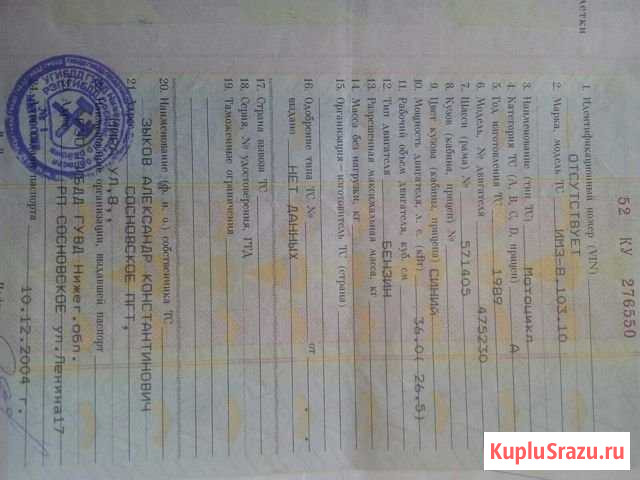 52 КУ 276550
1. Идентификационный номер (VIN)
ОТСУТСТВУЕТ
2. Марка, модель ТС ИМЗ-8.103.10
3. Наименование (тип ТС) Мотоцикл
4. Категория ТС (А, В, С, D, прицеп) А
5. Год изготовления ТС 1989
6. Модель, № двигателя 475230
7. Шасси (рама) № 571405
8. Кузов (кабина, прицеп) №
9. Цвет кузова (кабины, прицепа) СИНИЙ
10. Мощность двигателя, л. с. (кВт) 36.0( 26.5)
11. Рабочий объем двигателя, куб. см
12. Тип двигателя БЕНЗИН
13. Разрешенная максимальная масса, кг
14. Масса без нагрузки, кг
15. Организация-изготовитель ТС (страна)
16. Одобрение типа ТС № от . .
выдано НЕТ ДАННЫХ
17. Страна вывоза ТС
18. Серия, № удостоверения, ГТД
19. Таможенные ограничения
20. Наименование (ф. и. о.) собственника ТС
ЗЫКОВ АЛЕКСАНДР КОНСТАНТИНОВИЧ
21. СОСНОВСКОЕ ПГТ,
УЛ,8,,
организации, выдавшей паспорт
ГУВД Нижег.обл.
РП СОСНОВСКОЕ ул.Ленина17
паспорта
10.12.2004 г.
KupluSrazu.ru